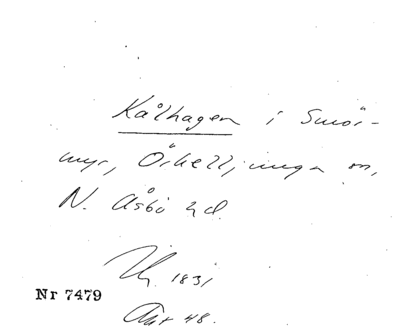 Kålhagen i Smör-
myr, Örkelljunga sn,
N. Åsbo hd.
1831
Nr 7479
Akt 48.